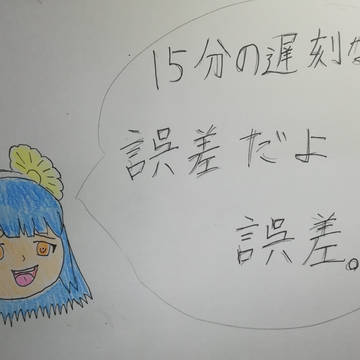 15分の遅刻な
誤差だよ
誤差。